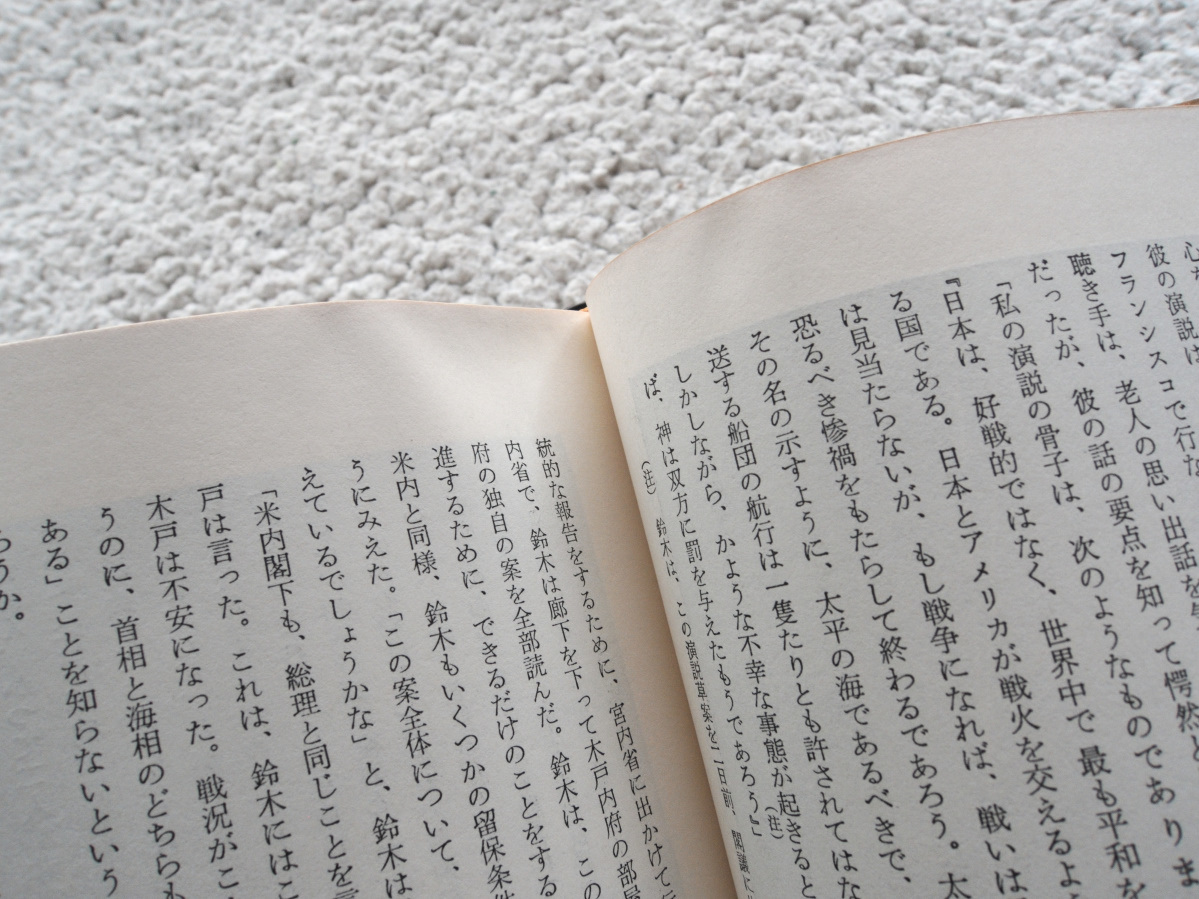 彼の演説は
フランシスコで行な
聴き手は、老人の思い出話を
だったが、彼の話の要点を知って愕然
「私の演説の骨子は、次のようなものでありま
『日本は、好戦的ではなく、世界中で最も平和を
る国である。日本とアメリカが戦火を交えるよ
は見当たらないが、もし戦争になれば、戦いは
恐るべき惨禍をもたらして終わるであろう。太
その名の示すように、太平の海であるべきで、
送する船団の航行は一隻たりとも許されてはな
しかしながら、かような不幸な事態が起きると
ば、神は双方に罰を与えたもうであろう』」(注)
(注) 鈴木は、この演説草案を二日前、閣議に
統的な報告をするために、宮内省に出かけて
内省で、鈴木は廊下を下って木戸内府の部屋
府の独自の案を全部読んだ。鈴木は、この
進するために、できるだけのことをする
米内と同様、鈴木もいくつかの留保条件
うにみえた。「この案全体について、
えているでしょうかな」と、鈴木は
「米内閣下も、総理と同じことを言
戸は言った。これは、鈴木にはこ
木戸は不安になった。戦況がこ
うのに、首相と海相のどちらも
ある」ことを知らないという
ろうか。